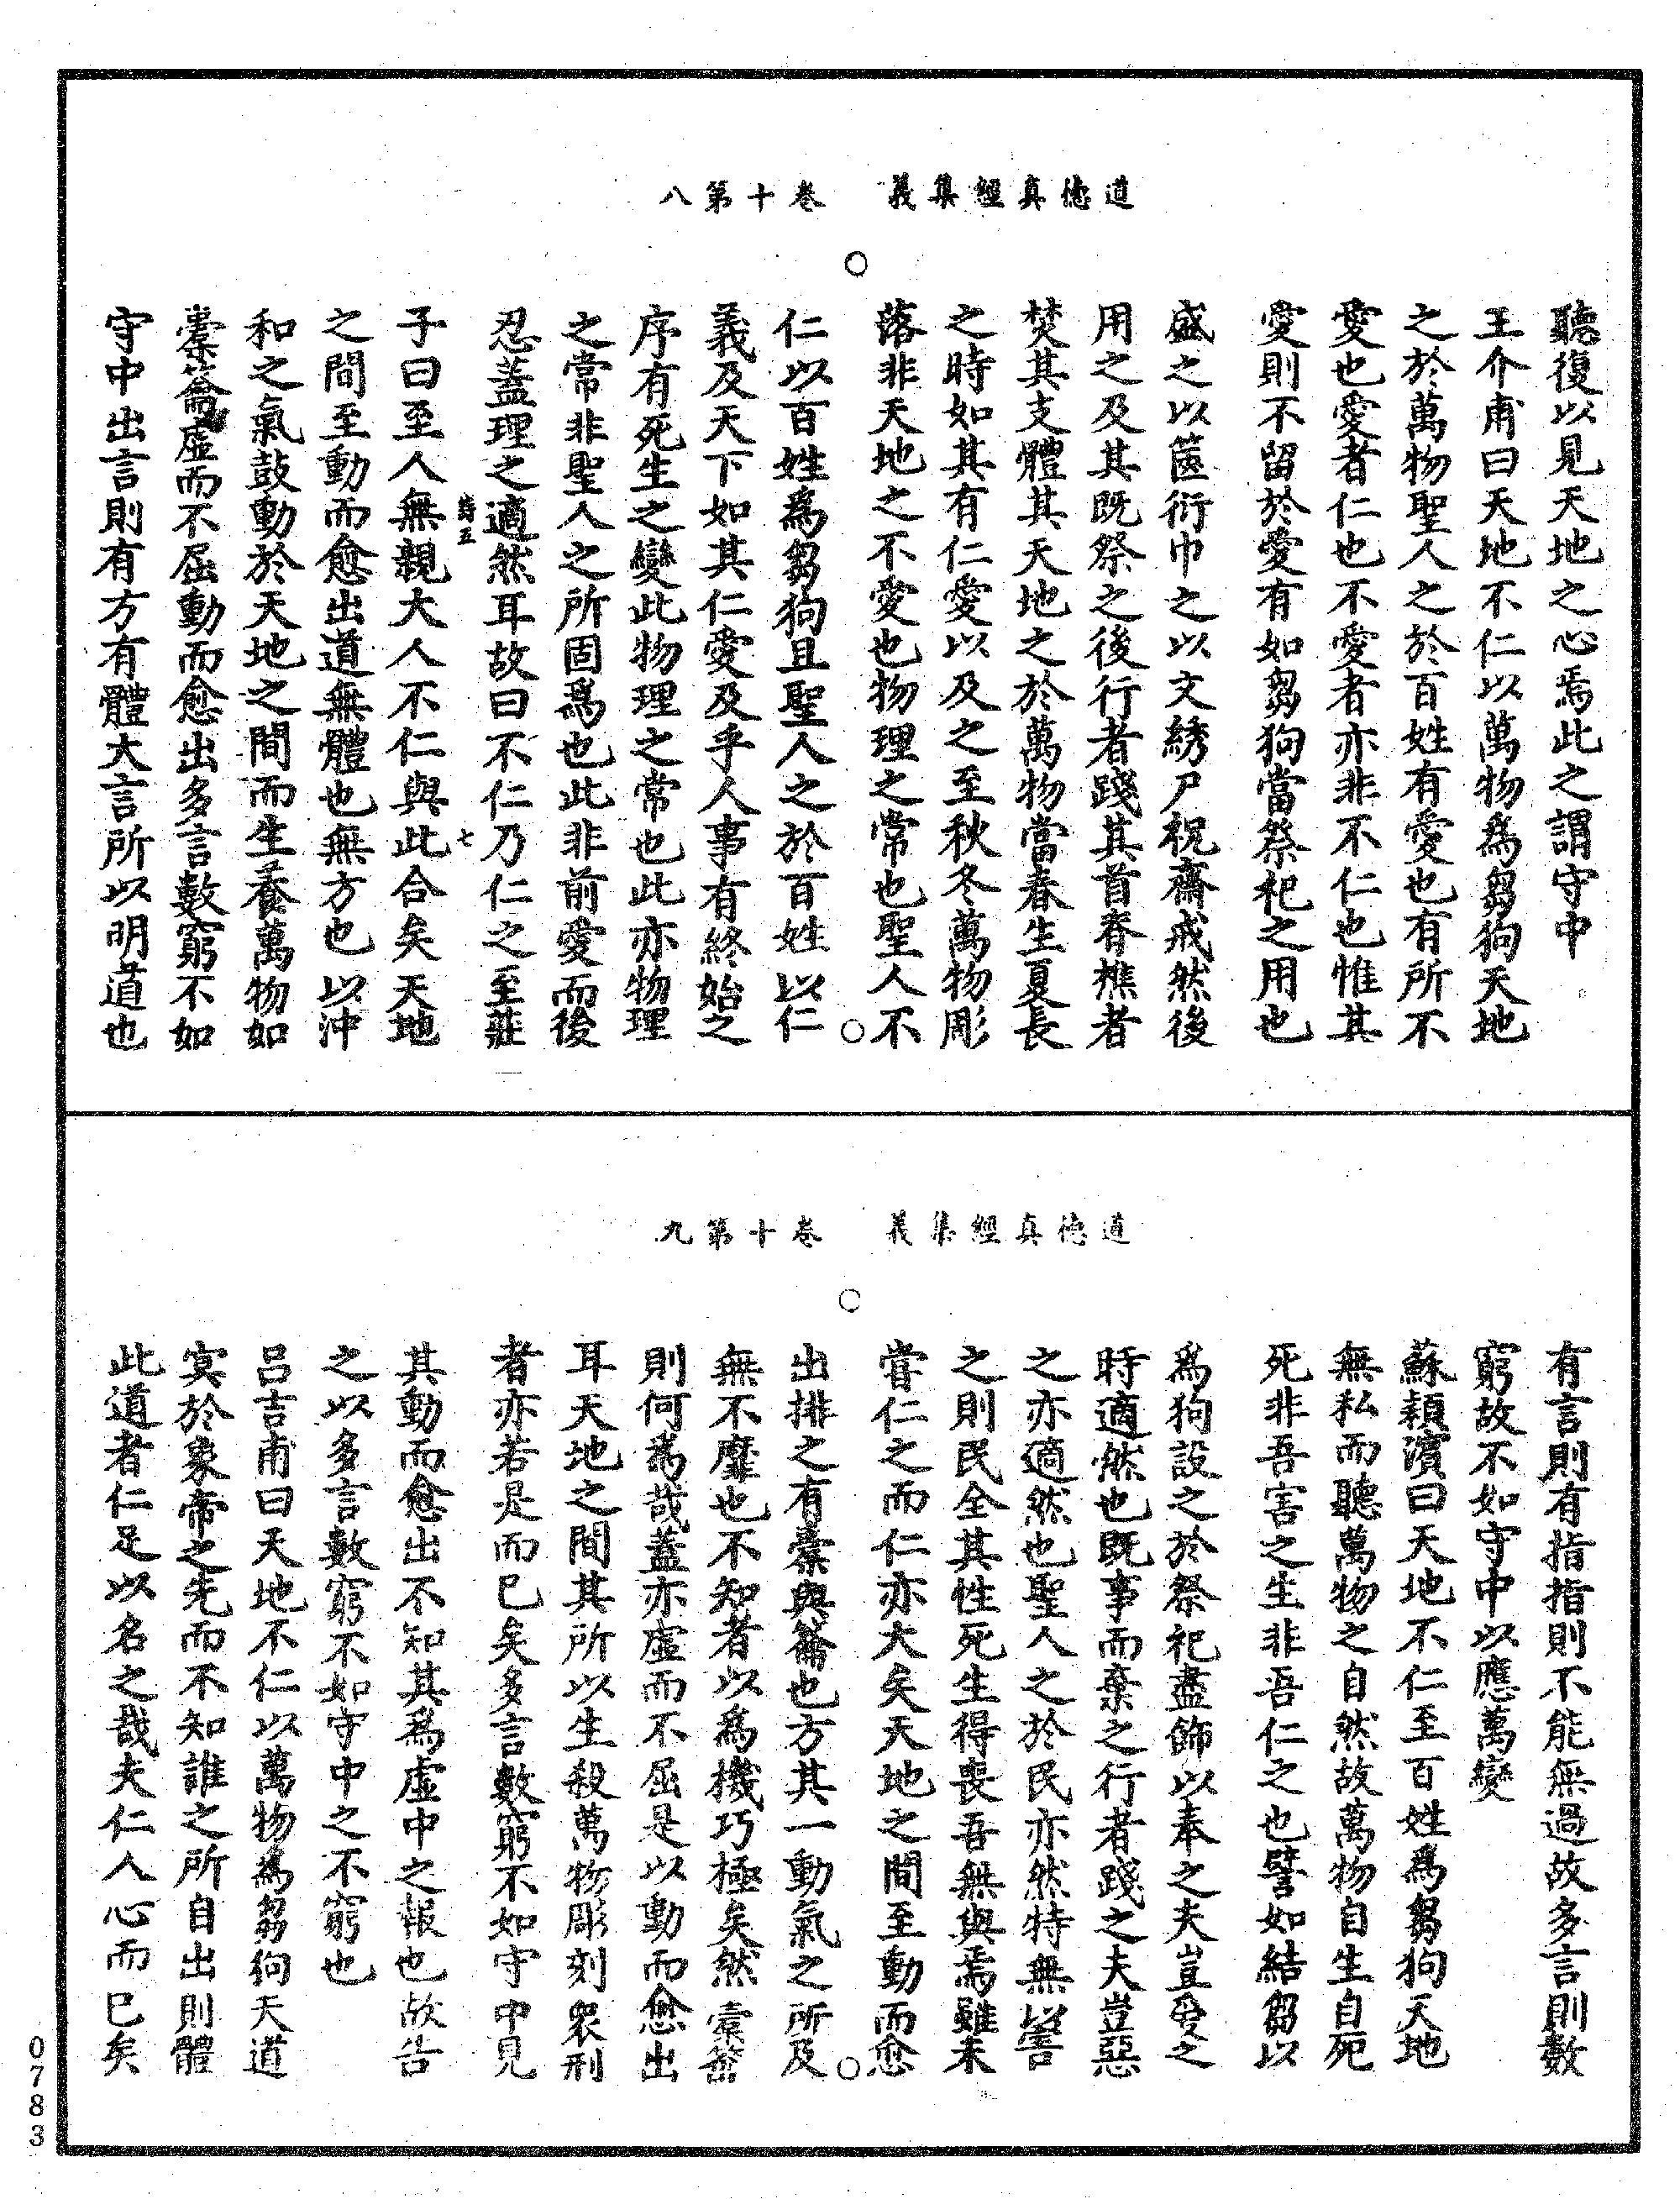 道德真經集義　卷十第八
聽復以見天地之心焉此之謂守中
王介甫曰天地不仁以萬物爲芻狗天地
之於萬物聖人之於百姓有愛也有所不
愛也愛者仁也不愛者亦非不仁也惟其
愛則不留於愛有如芻狗當祭祀之用也
盛之以篋衍巾之以文綉尸祝齋戒然後
用之及其既祭之後行者踐其首脊樵者
焚其支體其天地之於萬物當春生夏長
之時如其有仁愛以及之至秋冬萬物彫
落非天地之不愛也物理之常也聖人不
仁以百姓爲芻狗且聖人之於百姓以仁
義及天下如其仁愛及乎人事有終始之
序有死生之變此物理之常也此亦物理
之常非聖人之所固爲也此非前愛而後
忍蓋理之適然耳故曰不仁乃仁之至莊
五　七
子曰至人無親大人不仁與此合矣天地
之間至動而愈出道無體也無方也以沖
和之氣鼓動於天地之間而生養萬物如
橐籥虛而不屈動而愈出多言數窮不如
守中出言則有方有體大言所以明道也
道德真經集義　卷十第九
有言則有指指則不能無過故多言則數
窮故不如守中以應萬變
蘇潁濱曰天地不仁至百姓爲芻狗天地
無私而聽萬物之自然故萬物自生自死
死非吾害之生非吾仁之也譬如結芻以
爲狗設之於祭祀盡飾以奉之夫豈愛之
時適然也既事而棄之行者踐之夫豈惡
之亦適然也聖人之於民亦然特無以害
之則民全其性死生得喪吾無與焉雖未
嘗仁之而仁亦大矣天地之間至動而愈
出排之有橐與籥也方其一動氣之所及
無不靡也不知者以爲機巧極矣然橐籥
則何爲哉蓋亦虛而不屈是以動而愈出
耳天地之間其所以生殺萬物彫刻衆形
者亦若是而已矣多言數窮不如守中見
其動而愈出不知其爲虛中之報也故告
之以多言數窮不如守中之不窮也
呂吉甫曰天地不仁以萬物爲芻狗天道
冥於象帝之先而不知誰之所自出則體
此道者仁足以名之哉夫仁人心而已矣
0783